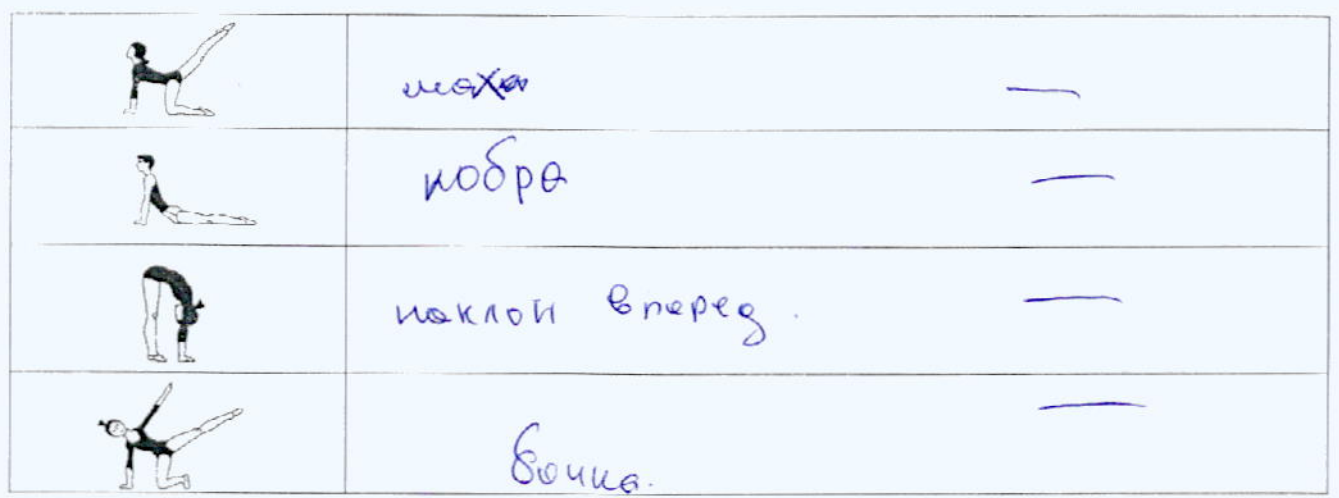 маха —
кобра —
наклон вперед. —
бочка. —